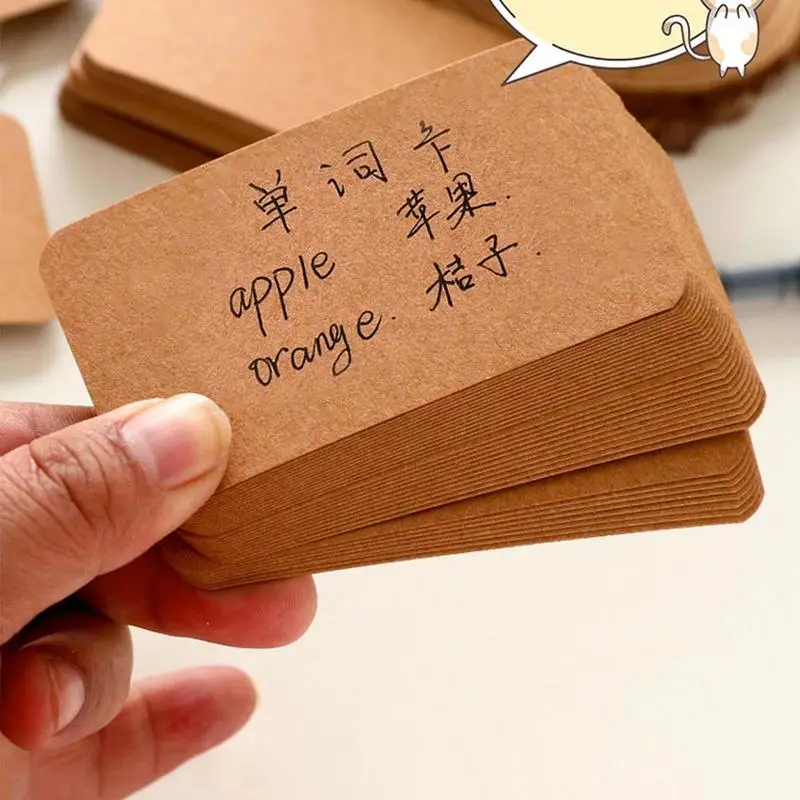 单词卡
apple 苹果.
orange. 桔子.